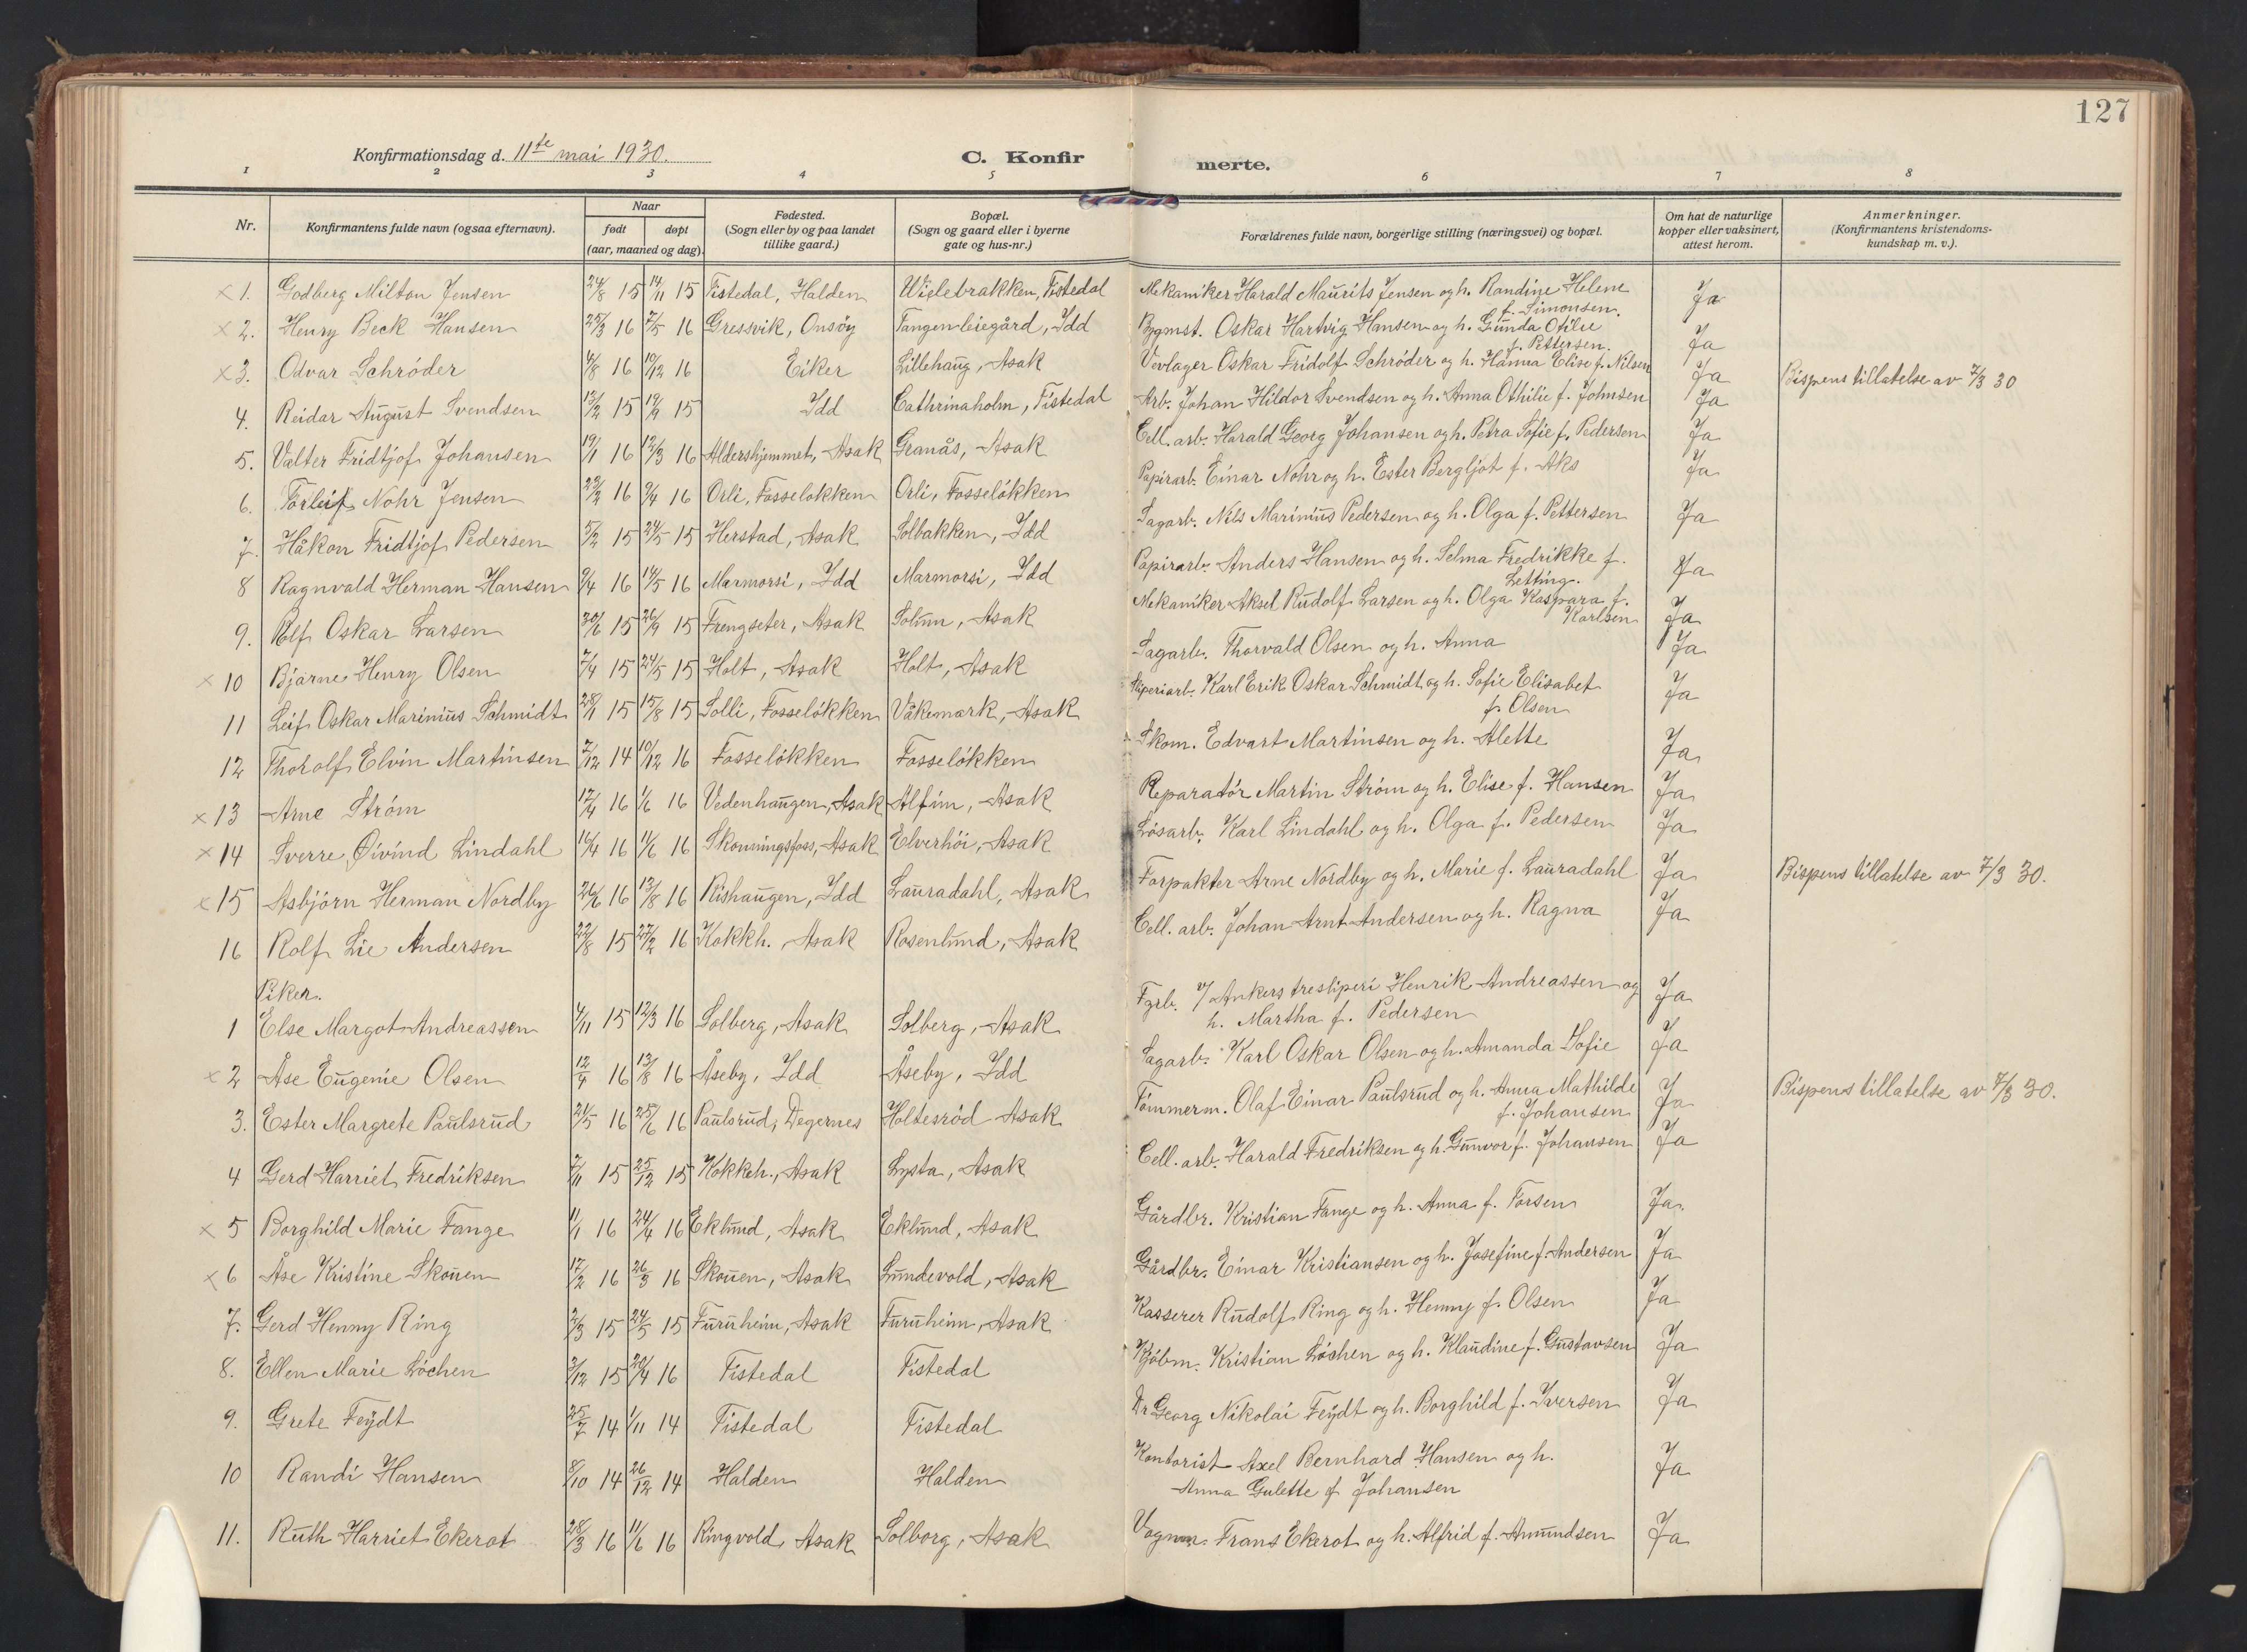 127
Konfirmationsdag d. 11te mai 1930. C. Konfirmerte.
1 2 3 4 5 6 7 8
Nr. Konfirmantens fulde navn (ogsaa efternavn). Naar født døpt (aar, maaned og dag). Fødested. (Sogn eller by og paa landet tillike gaard.) Bopæl. (Sogn og gaard eller i byerne gate og hus-nr.) Forældrenes fulde navn, borgerlige stilling (næringsvei) og bopæl. Om hat de naturlige kopper eller vaksinert, attest herom. Anmerkninger. (Konfirmantens kristendomskundskap m. v.).
x 1. Godberg Milton Jensen 24/8 15 14/11 15 Tistedal, Halden Wielebrakken, Tistedal Mekaniker Harald Maurits Jensen og h. Randine Helene f. Simonsen. Ja
x 2. Henry Beck Hansen 25/3 16 7/5 16 Gressvik, Onsöy Tangen leiegård, Idd Bygmst. Oskar Hartvig Hansen og h. Gunda Otilie f. Pettersen. Ja
x 3. Odvar Schröder 4/8 16 10/12 16 Eiker Lillehaug, Asak Vevlager Oskar Fridolf Schröder og h. Hanna Elise f. Nilsen Ja Bispens tillatelse av 7/3 30
4. Reidar August Svendsen 13/2 15 19/9 15 Idd Cathrinaholm, Tistedal Arb. Johan Hildor Svendsen og h. Anna Othilie f. Johnsen Ja
5. Valter Fridtjof Johansen 19/1 16 12/3 16 Aldershjemmet, Asak Granås, Asak Cell. arb. Harald Georg Johansen og h. Petra Sofie f. Pedersen Ja
6. Torleif Nohr Jensen 29/2 16 9/4 16 Orli, Fosselökken Orli, Fosselökken Papirarb. Einar Nohr og h. Ester Bergljot f. Aks Ja
7. Håkon Fridtjof Pedersen 5/2 15 24/5 15 Herstad, Asak Solbakken, Idd Sagarb. Nils Marinius Pedersen og h. Olga f. Pettersen Ja
8 Ragnvald Herman Hansen 9/4 16 14/5 16 Marmorsi, Idd Marmorsi, Idd Papirarb. Anders Hansen og h. Selma Fredrikke f. Letting. Ja
9. Rolf Oskar Larsen 30/6 15 26/9 15 Frengseter, Asak Solum, Asak Mekaniker Aksel Rudolf Larsen og h. Olga Kaspara f. Karlsen Ja
x 10 Bjarne Henry Olsen 7/4 15 24/5 15 Holt, Asak Holt, Asak Sagarb. Thorvald Olsen og h. Anna Ja
11 Leif Oskar Marinius Schmidt 28/1 15 15/8 15 Solli, Fosselökken Våkemark, Asak Sliperiarb. Karl Erik Oskar Schmidt og h. Sofie Elisabet f. Olsen Ja
12 Thorolf Elvin Martinsen 7/12 14 10/12 16 Fosselökken Fosselökken Skom. Edvart Martinsen og h. Alette Ja
x 13 Arne Ström 12/4 16 1/6 16 Vedenhaugen, Asak Alfim, Asak Reparatör Martin Ström og h. Elise f. Hansen Ja
x 14 Sverre Öivind Lindahl 16/4 16 11/6 16 Skonningsfoss, Asak Elverhöi, Asak Lösarb. Karl Lindahl og h. Olga f. Pedersen Ja
x 15 Asbjörn Herman Nordby 26/6 16 13/8 16 Rishaugen, Idd Lauradahl, Asak Forpakter Arne Nordby og h. Marie f. Lauradahl Ja Bispens tillatelse av 7/3 30.
16 Rolf Lie Andersen 22/8 15 27/2 16 Kokkh., Asak Rosenlund, Asak Cell. arb. Johan Arnt Andersen og h. Ragna Ja
Piker.
1 Else Margot Andreassen 4/11 15 12/3 16 Solberg, Asak Solberg, Asak Fgrb. v/ Ankers tresliperi Henrik Andreassen og h. Martha f. Pedersen Ja
x 2 Åse Eugenie Olsen 12/4 16 13/8 16 Åseby, Idd Åseby, Idd Sagarb. Karl Oskar Olsen og h. Amanda Sofie Ja
3. Ester Margrete Paulsrud 21/5 16 25/6 16 Paulsrud, Degernes Holtesröd Asak Tömmerm. Olaf Einar Paulsrud og h. Anna Mathilde f. Johansen Ja Bispens tillatelse av 7/3 30.
4 Gerd Harriet Fredriksen 2/11 15 25/12 15 Kokkeh., Asak Lysta, Asak Cell. arb. Harald Fredriksen og h. Gunvor f. Johansen Ja
x 5 Borghild Marie Fange 11/1 16 24/4 16 Eklund, Asak Eklund, Asak Gårdbr. Kristian Fange og h. Anna f. Torsen Ja.
x 6 Åse Kristine Skouen 17/2 16 26/3 16 Skouen, Asak Lundevold, Asak Gårdbr. Einar Kristiansen og h. Josefine f. Andersen Ja
7. Gerd Henny Ring 2/3 15 24/5 15 Furuheim, Asak Furuheim, Asak Kasserer Rudolf Ring og h. Henny f. Olsen Ja
8. Ellen Marie Löchen 3/12 15 20/4 16 Tistedal Tistedal Kjöbm. Kristian Löchen og h. Klaudine f. Gustavsen Ja
9. Grete Feydt 25/7 14 1/11 14 Tistedal Tistedal Dr Georg Nikolai Feydt og h. Borghild f. Iversen Ja
10 Randi Hansen 8/10 14 26/12 14 Halden Halden Kontorist Axel Bernhard Hansen og h. Anna Gulette f Johansen Ja
11. Ruth Harriet Ekerot 28/3 16 11/6 16 Ringvold, Asak Solborg, Asak Vognm. Frans Ekerot og h. Alfrid f. Amundsen Ja